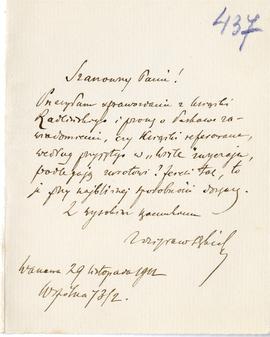 437
Szanowny Panie!
Przesyłam sprawozdanie z książki
Radlińskiego i proszę o łaskawe za-
wiadomienie, czy książki referowane,
według przyjętego w zwyczaju,
podlegają zwrotowi i jeżeli tak, to
je przy najbliższej sposobności
Z wysokim szacunkiem
Warszawa 29 listopada
Wspólna